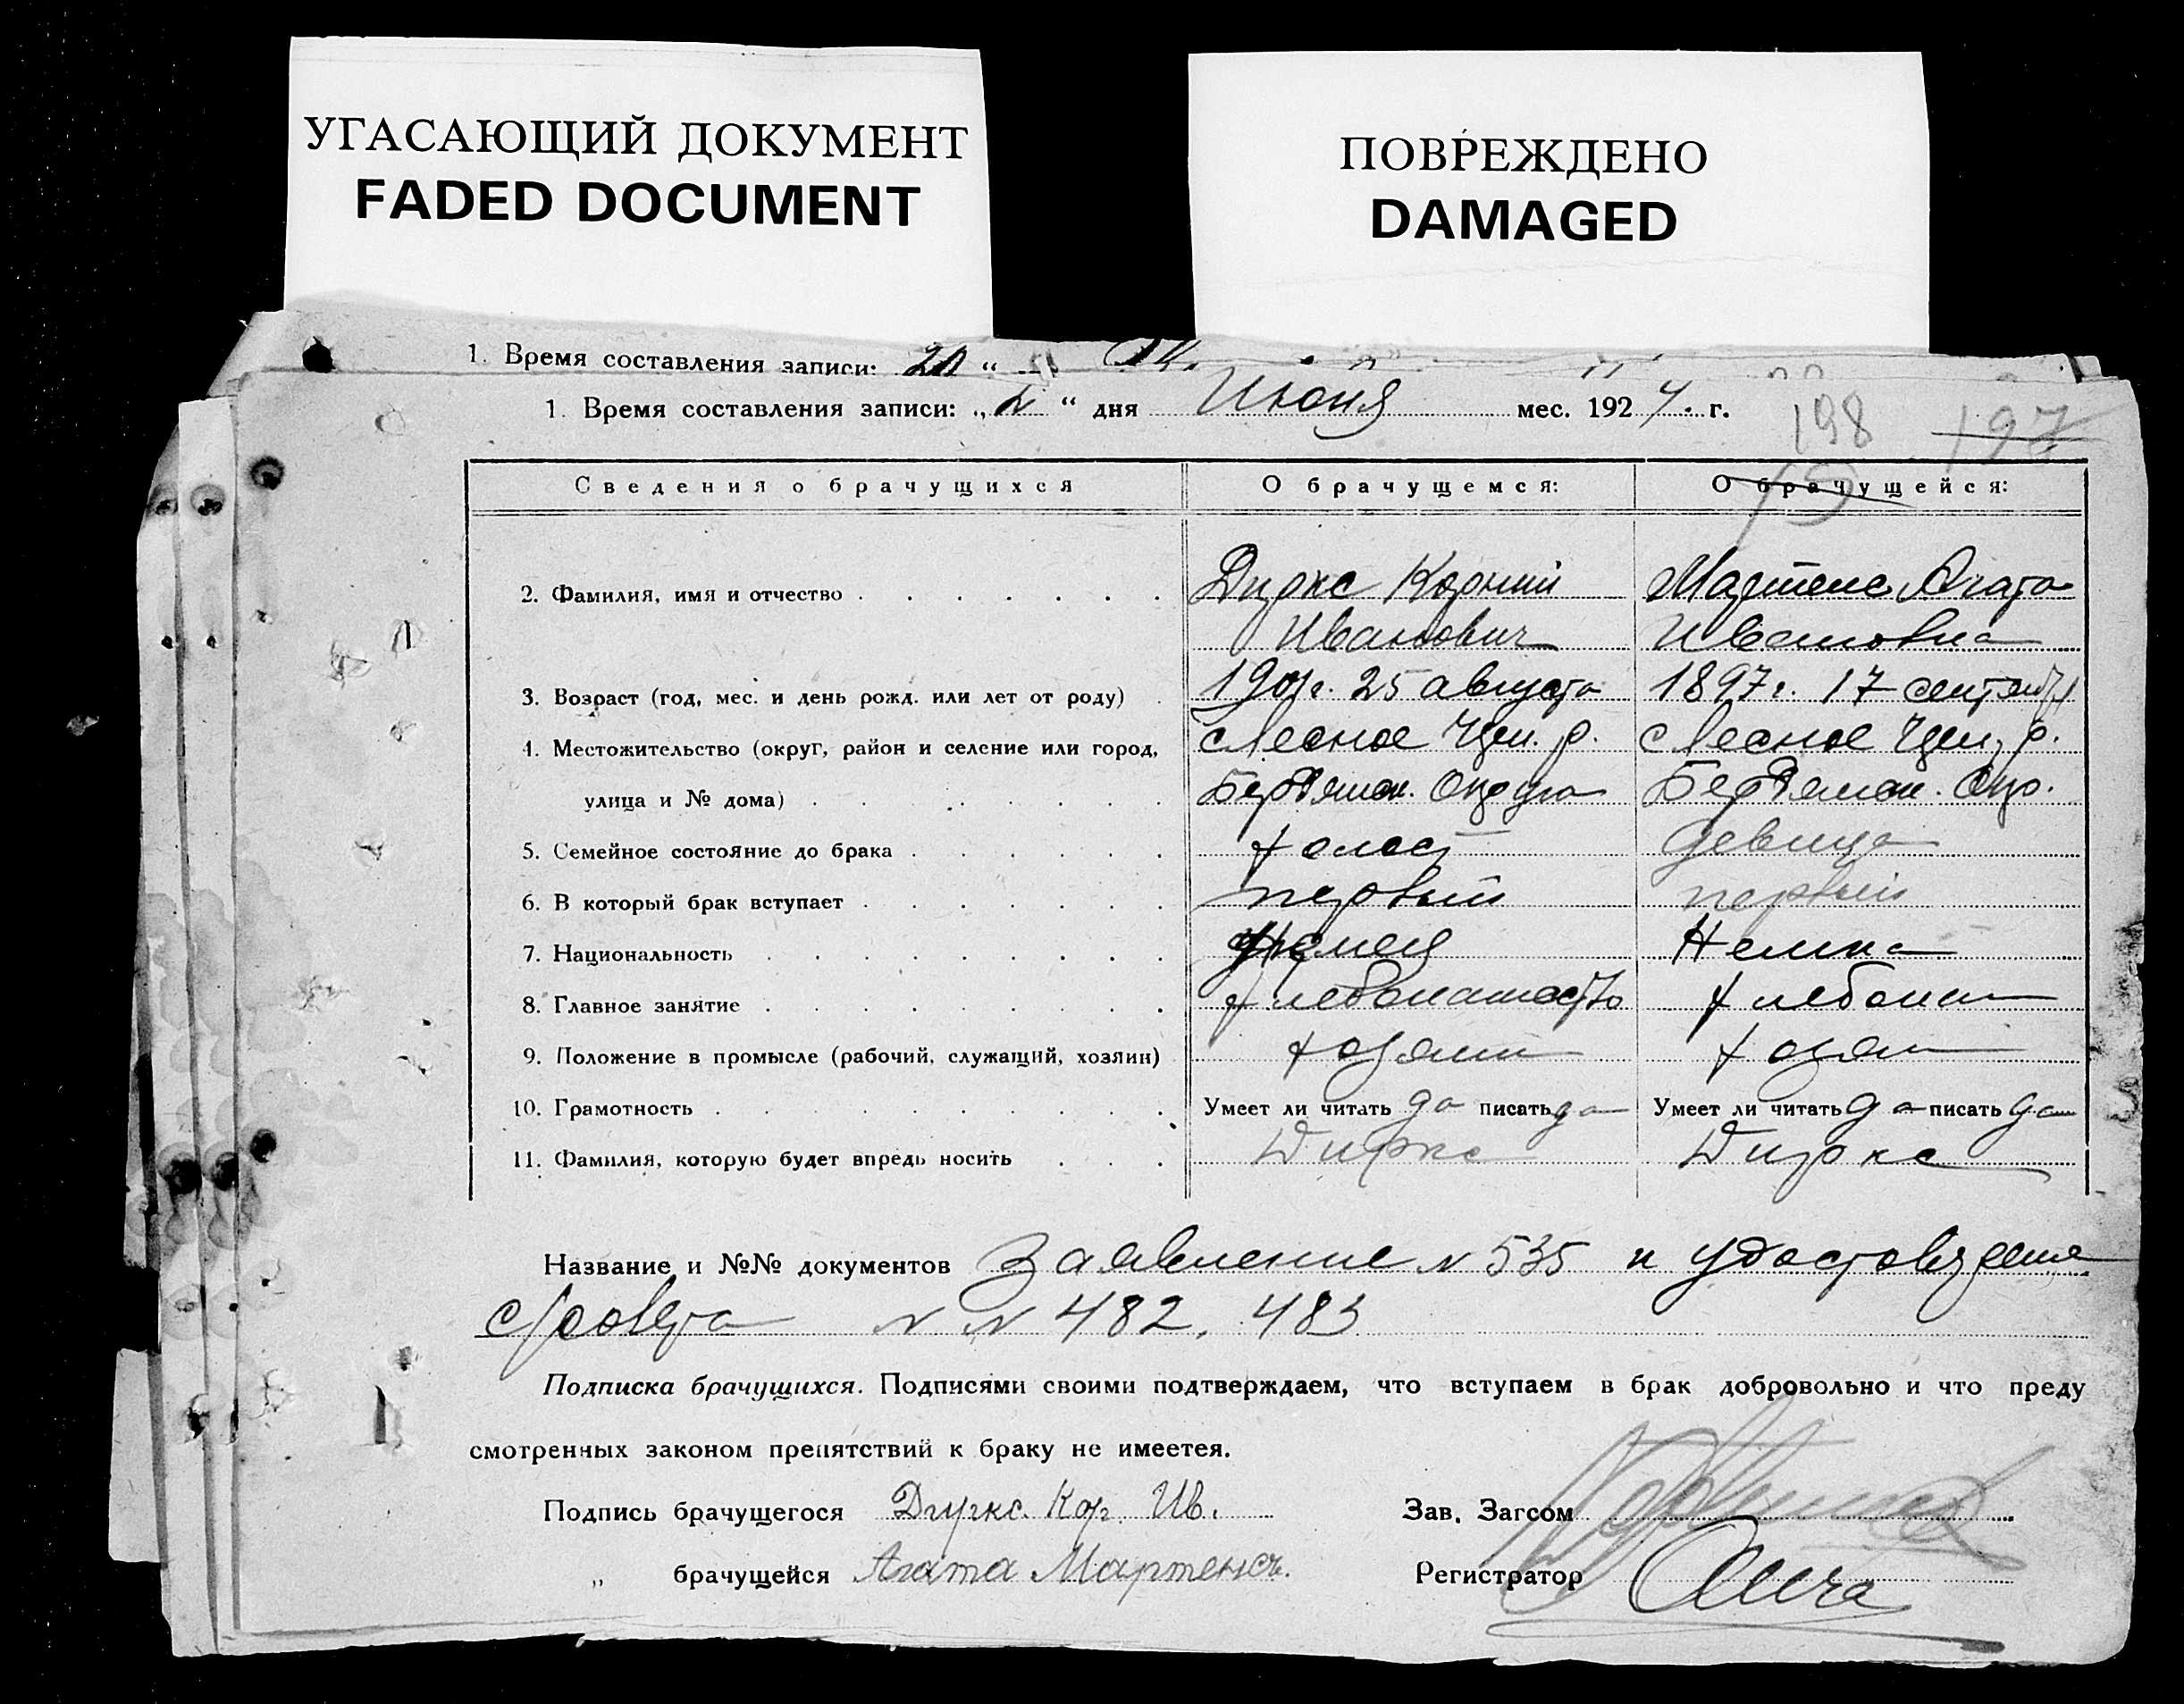 УГАСАЮЩИЙ ДОКУМЕНТ
FADED DOCUMENT
ПОВРЕЖДЕНО
DAMAGED
1. Время составления записи: 20 "
1. Время составления записи: „2“ дня Июня мес. 1924. г.
198 197
Сведения о брачущихся О брачущемся: О брачущейся:
2. Фамилия, имя и отчество Диркс Корний Мартенс Агата
Иванович Ивановна
3. Возраст (год, мес. и день рожд. или лет от роду) 25 августа 1897г. 17 сентяб
4. Местожительство (округ, район и селение или город, с Лесное р. с Лесное р.
улица и № дома) Бердянск. Округа Бердянск. Окр.
5. Семейное состояние до брака холост девица
6. В который брак вступает первый первый
7. Национальность немец Немка
8. Главное занятие хлебопашество хлебопаш
9. Положение в промысле (рабочий, служащий, хозяин) хозяин хозяи
10. Грамотность Умеет ли читать да писать да Умеет ли читать да писать да
11. Фамилия, которую будет впредь носить Диркс Диркс
Название и №№ документов Заявление № 535 и удостоверения
с/совета №№ 482, 483
Подписка брачущихся. Подписями своими подтверждаем, что вступаем в брак добровольно и что преду
смотренных законом препятствий к браку не имеетея.
Подпись брачущегося Диркс. Кор. Ив. Зав. Загсом
„ брачущейся Агата Мартенсъ. Регистратор